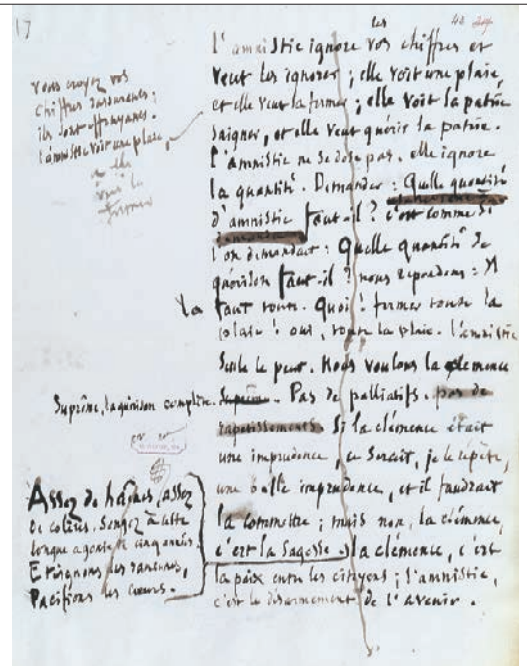 17
les
l'amnistie ignore vos chiffres et
veut les ignorer ; elle voit une plaie,
et elle veut la fermer ; elle voit la patrie
saigner, et elle veut guérir la patrie.
l'amnistie ne se dose pas. elle ignore
la quantité. Demander : Quelle quantité
d'amnistie faut-il ? c'est comme si
l'on demandait : Quelle quantité de
guérison faut-il ? nous répondons : Il
la faut toute. Quoi ! fermer toute la
plaie ! oui, toute la plaie. l'amnistie
seule le peut. Nous voulons la clémence
Suprême, la guérison complète. Pas de palliatifs. pas de
rapetissements Si la clémence était
une imprudence, ce serait, je le répète,
une belle imprudence, et il faudrait
la commettre ; mais non, la clémence,
c'est la Sagesse. la clémence, c'est
la paix entre les citoyens ; l'amnistie,
c'est le désarmement de l'avenir.
vous croyez vos
chiffres rassurants ;
ils sont effrayants.
l'amnistie voit une plaie,
Assez de haines, assez
de colères. Songez à cette
longue agonie de cinq années.
Eteignons les rancunes,
Pacifions les cœurs.